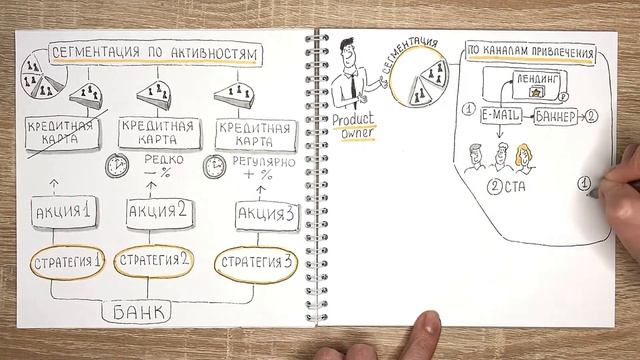 СЕГМЕНТАЦИЯ ПО АКТИВНОСТЯМ
КРЕДИТНАЯ
КАРТА
КРЕДИТНАЯ
КАРТА
КРЕДИТНАЯ
КАРТА
РЕДКО
- %
РЕГУЛЯРНО
+ %
АКЦИЯ 1
АКЦИЯ 2
АКЦИЯ 3
СТРАТЕГИЯ 1
СТРАТЕГИЯ 2
СТРАТЕГИЯ 3
БАНК
СЕГМЕНТАЦИЯ
Product
Owner
ПО КАНАЛАМ ПРИВЛЕЧЕНИЯ
ЛЕНДИНГ
1 E-MAIL БАННЕР 2
2 СТА
1